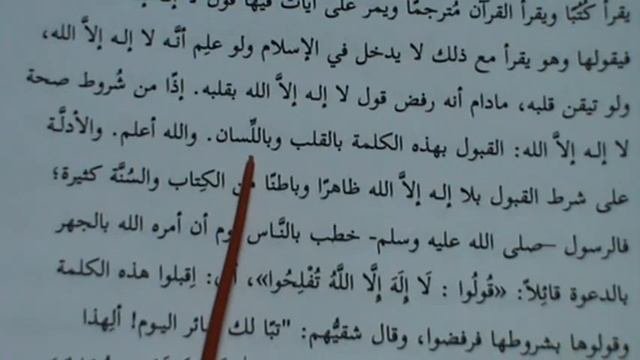 يقرأ كُتُبًا ويقرأ القرآن مُترجمًا ويمر على آيات فيها قول لا
فيقولها وهو يقرأ مع ذلك لا يدخل في الإسلام ولو علِم أنَّه لا إلـه إلاَّ الله،
ولو تيقن قلبه، مادام أنه رفض قول لا إلـه إلاَّ الله بقلبه. إذًا من شُروط صحة
لا إلـه إلاَّ الله: القبول بهذه الكلمة بالقلب وباللِّسان. والله أعلم. والأدلَّة
على شرط القبول بلا إلـه إلاَّ الله ظاهرًا وباطنًا من الكِتاب والسُنَّة كثيرة؛
فالرسول –صلى الله عليه وسلم- خطب بالنَّاس يوم أن أمره الله بالجهر
بالدعوة قائِلاً: «قُولُوا : لَا إِلَهَ إِلَّا اللَّهُ تُفْلِحُوا»، أي: اِقبلوا هذه الكلمة
وقولوها بشروطها فرفضوا، وقال شقيُّهم: "تبًا لك سائر اليوم! ألِهذا